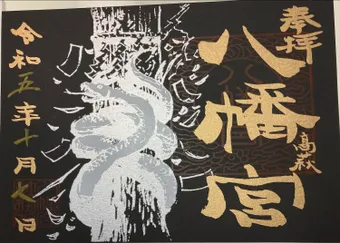 奉拝
八幡宮
高萩
令和五年十月七日